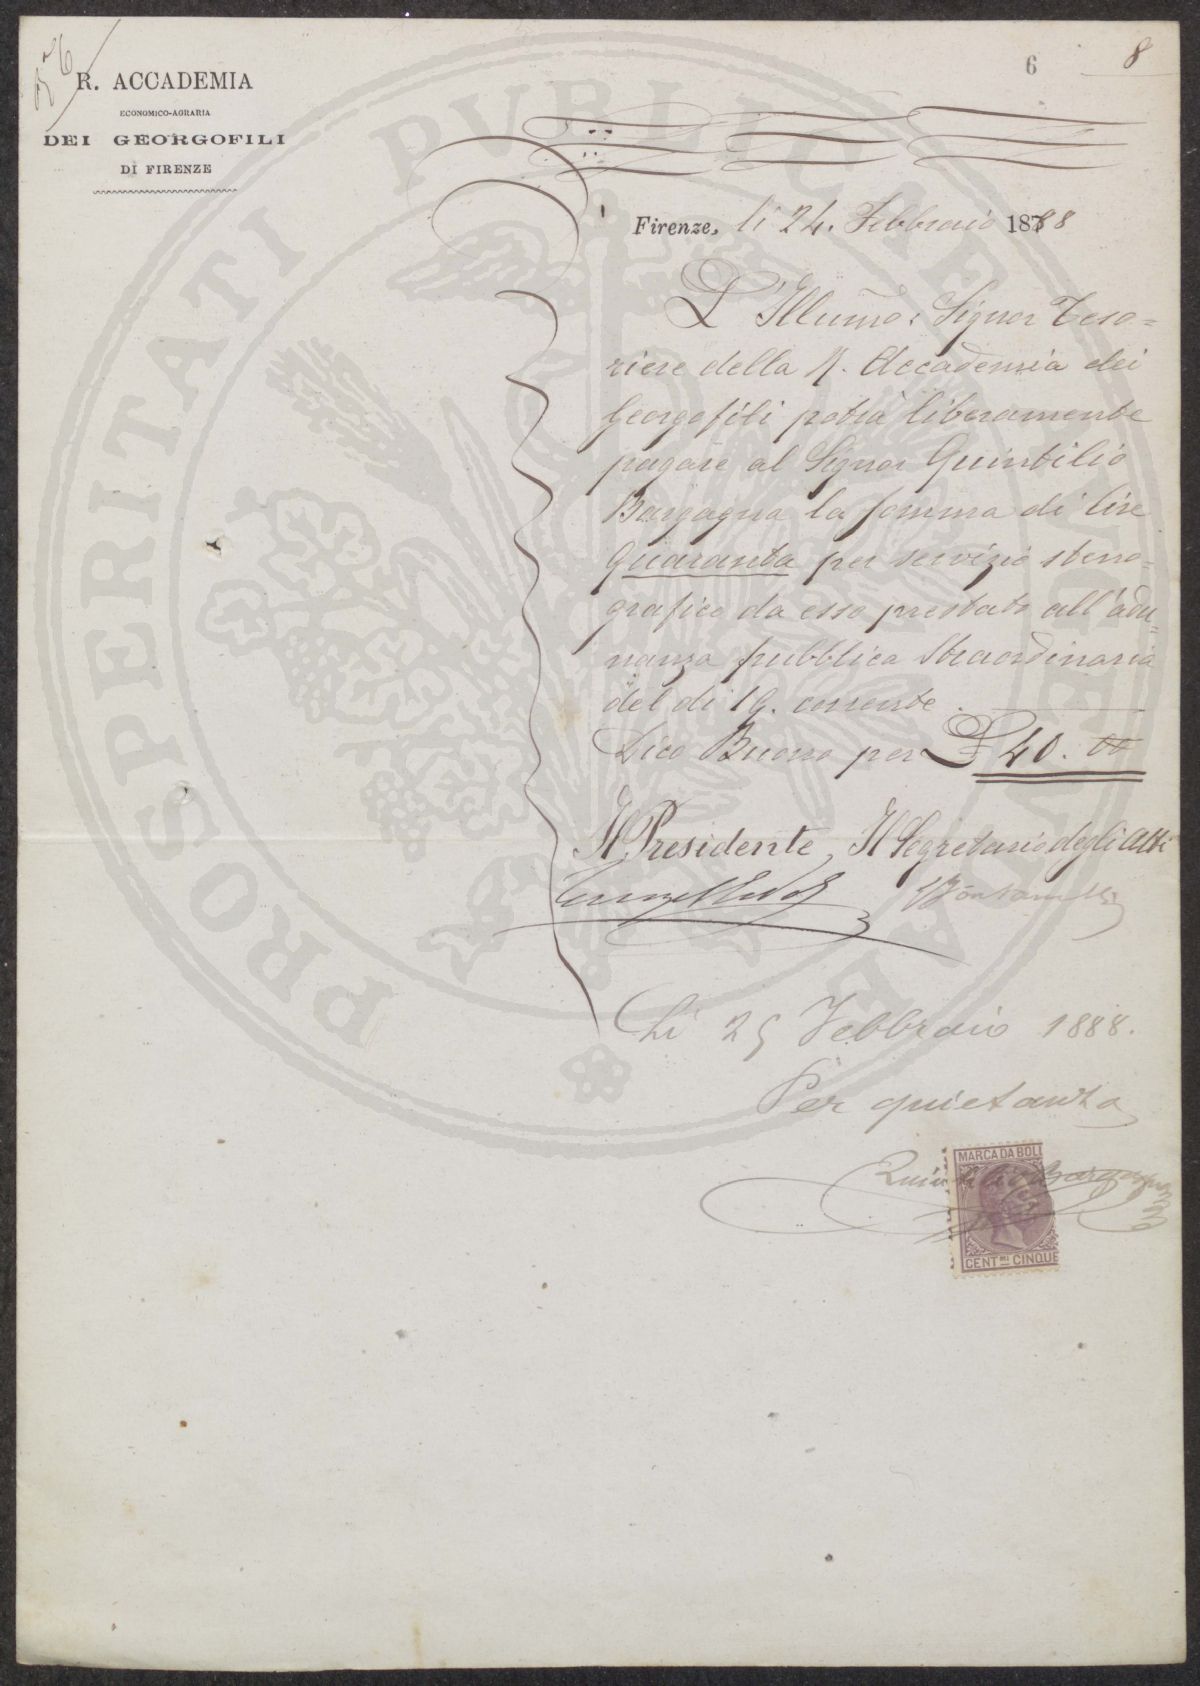 6
8
R. ACCADEMIA
ECONOMICO-AGRARIA
DEI GEORGOFILI
DI FIRENZE
Firenze, li 24. Febbraio 1888
L'Illumo: Signor Teso=
riere della R. Accademia dei
Georgofili potrà liberamente
pagare al Signor Quintilio
Bargagna la somma di lire
Quaranta per servizio steno=
grafico da esso prestato all'adu=
nanza pubblica Straordinaria
del di 19. corrente.
Dico Buono per £ 40. 00
Il Presidente, Il Segretario degli Atti
Li 25 Febbraio 1888.
Per quietanza
Quintilio Bargagna
MARCA DA BOLL
CENT.MI CINQUE
PROSPERITATI PVBLICAE AVGENDAE